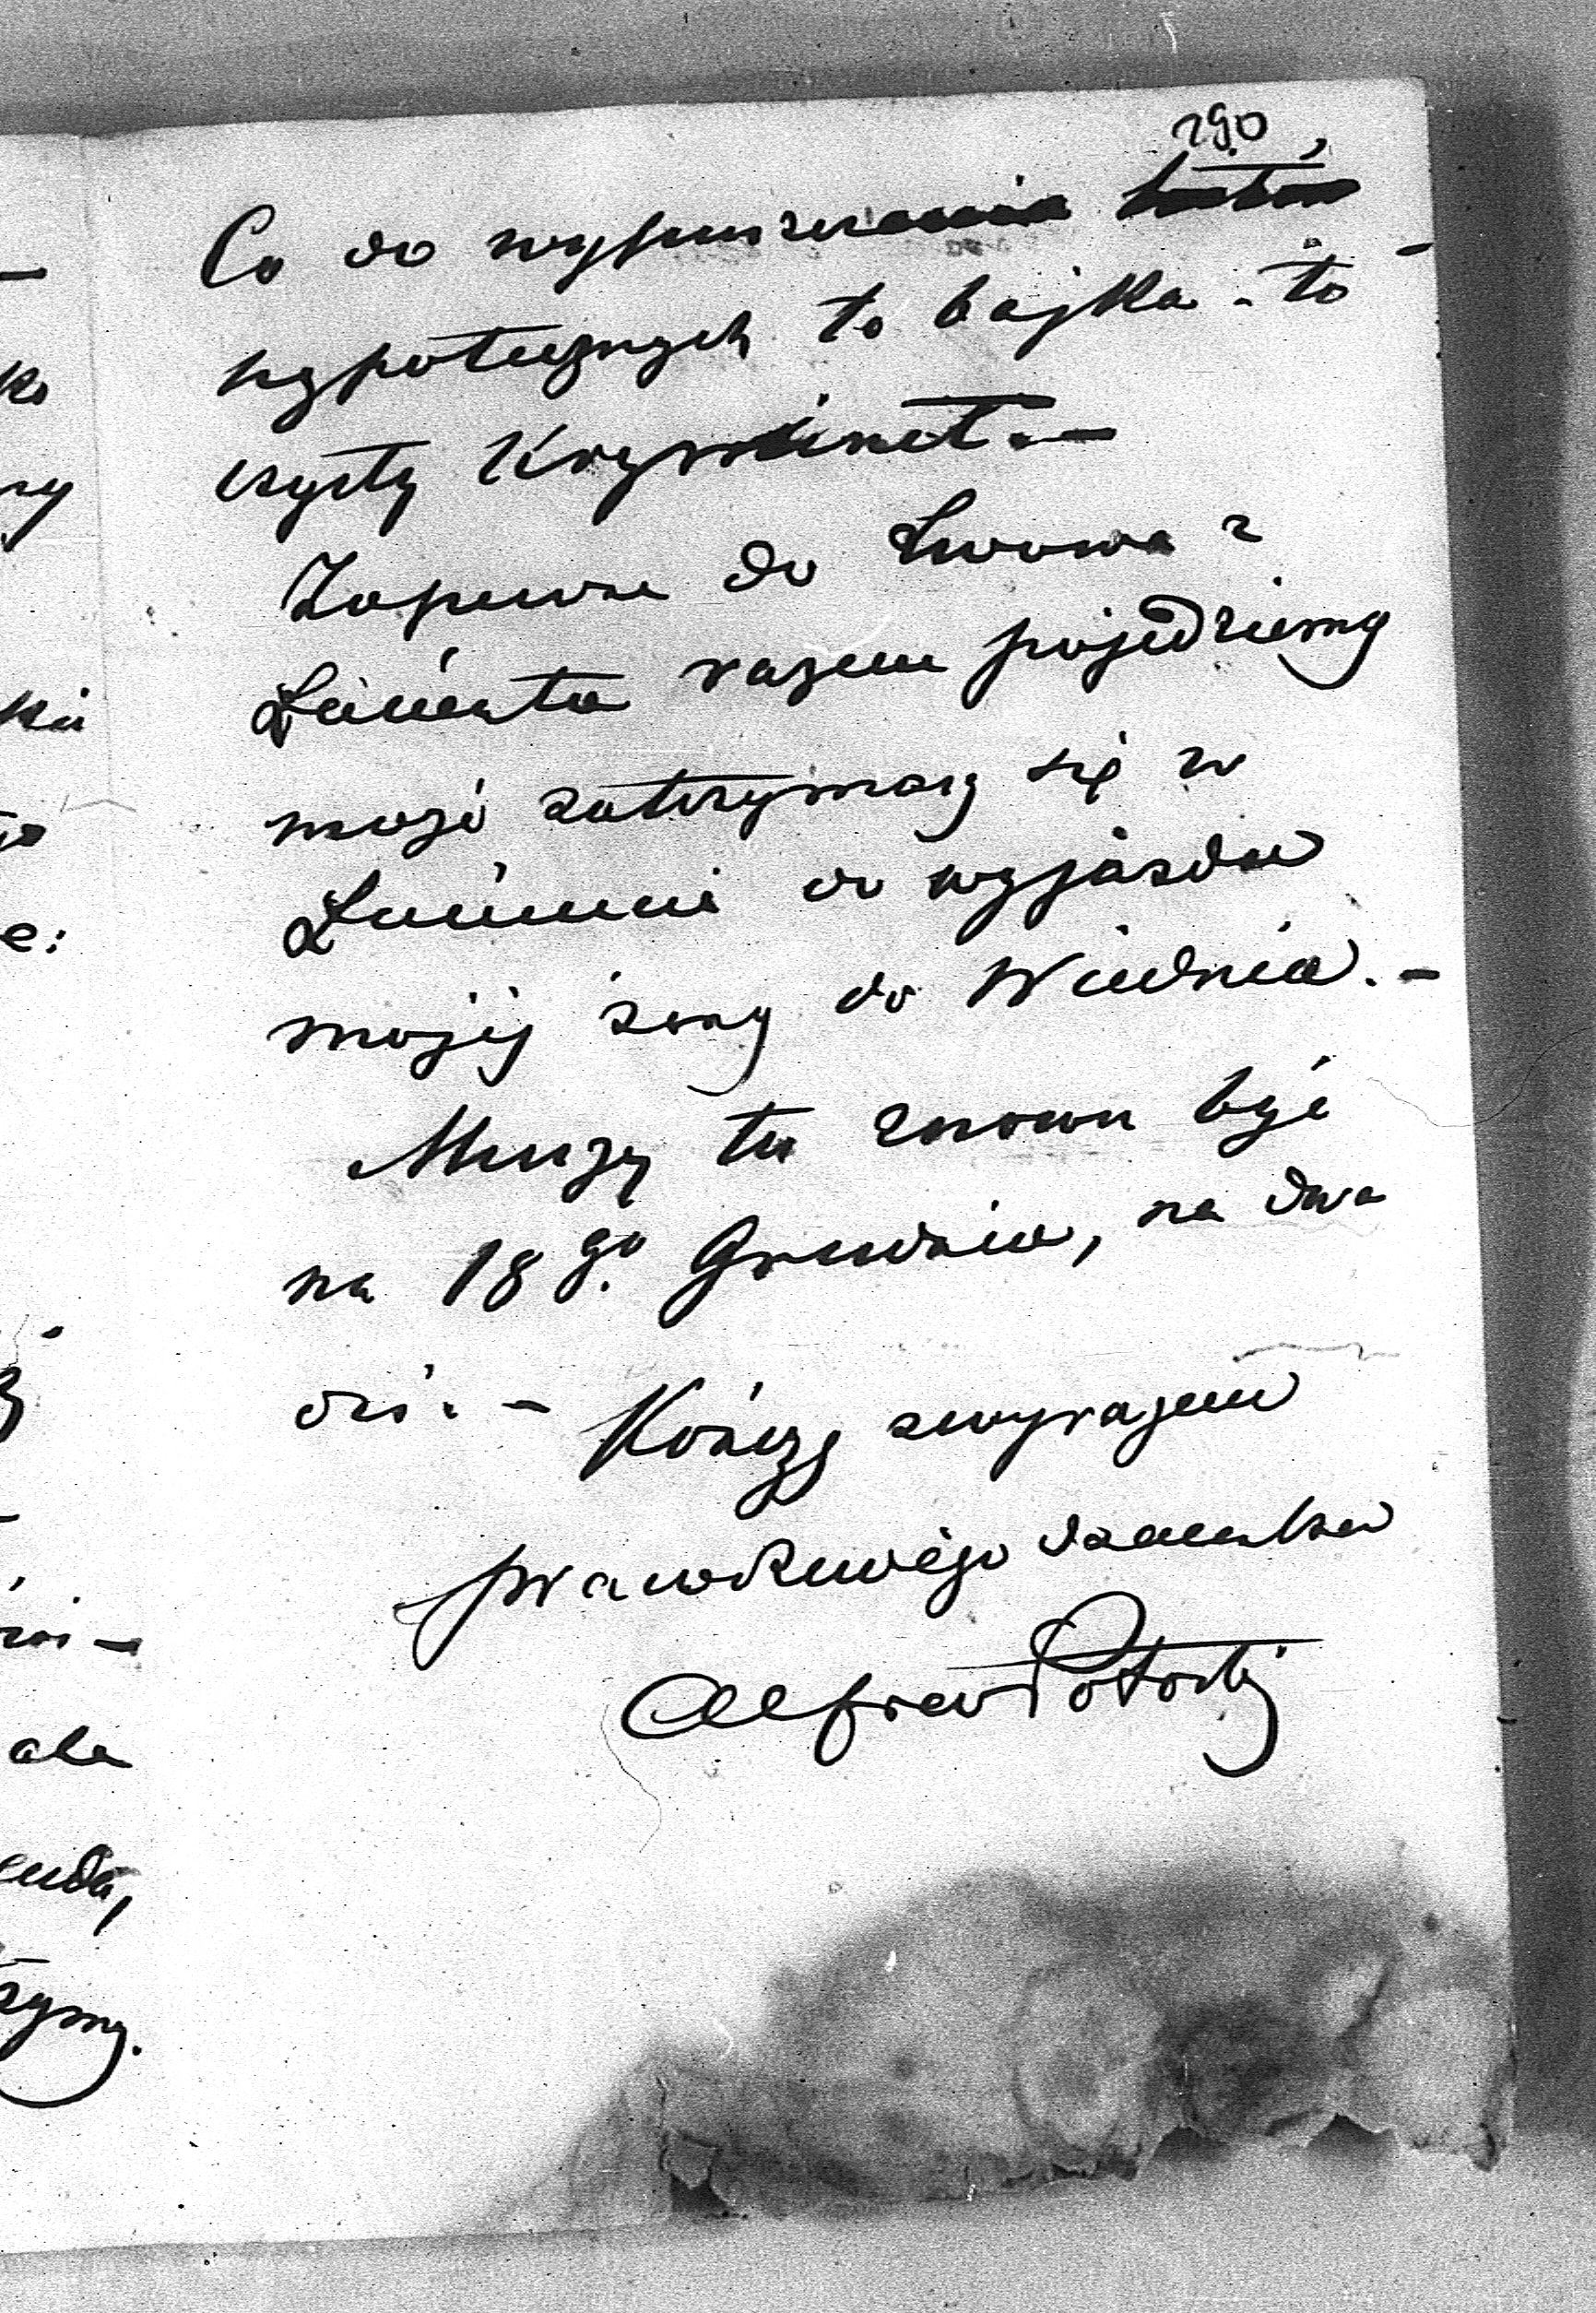 290
Co do wypuszczania listów
hypotecznych to bajka - to -
czysty Kryminał. -
Zapewne do Lwowa z
Łańcuta razem pojedziemy
moze zatrzymasz się w
Łańcucie do wyjazdu
mojej żony do Wiednia. -
Muszę tu znowu być
na 18go. Grudnia, na dwa
dni. - Kończę z wyrazem
prawdziwego szacunku
Alfred Potocki
ko
ny
ki
e:
ale